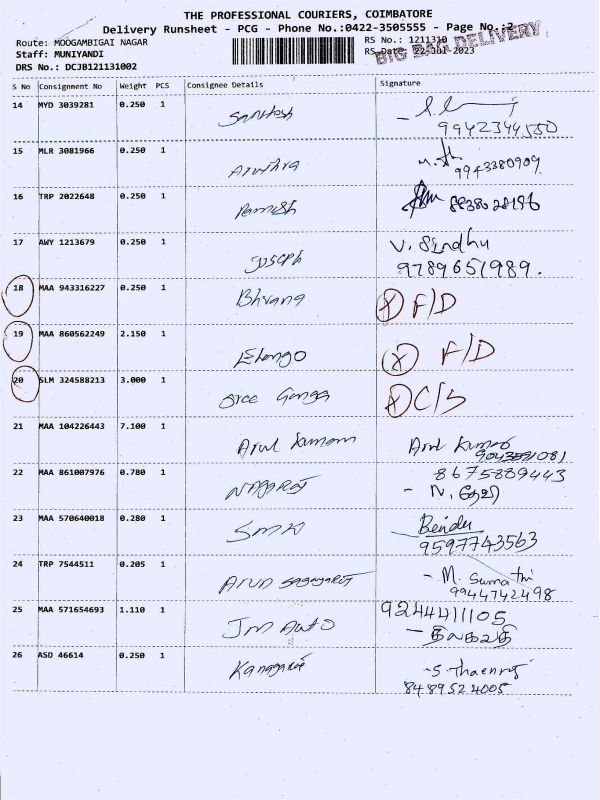 THE PROFESSIONAL COURIERS, COIMBATORE
Delivery Runsheet - PCG - Phone No.:0422-3505555 - Page No.:2
Route: MOOGAMBIGAI NAGAR
RS No.: 1211310
BIG BAG DELIVERY
Staff: MUNIYANDI
RS Date: 22-Jul-2023
DRS No.: DCJB121131002
S No Consignment No Weight PCS Consignee Details Signature
14 MYD 3039281 0.250 1 Santhosh
9942344550
15 MLR 3081966 0.250 1 Aruthra
9943380909
16 TRP 2022648 0.250 1 Ramesh 8838028196
17 AWY 1213679 0.250 1 Joseph V. Sindhu
9789651989.
18 MAA 943316227 0.250 1 Bhvana X F/D
19 MAA 860562249 2.150 1 Elango X F/D
20 SLM 324588213 3.000 1 Sree Ganga X C/S
21 MAA 104226443 7.100 1 Arul Arul Kumar
22 MAA 861007976 0.780 1 Nagaraj 8675889443
- N. தேவி
23 MAA 570640018 0.280 1 SMK Bendu
9597743563
24 TRP 7544511 0.205 1 Arun Sagayaraj - M. Sumathi
9944742498
25 MAA 571654693 1.110 1 JM Auto 9244411105
- திலகவதி
26 ASD 46614 0.250 1 Kanagaraj - S Thaenraj
8489524005